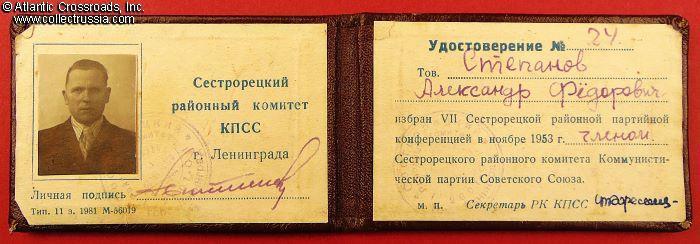 © Atlantic Crossroads, Inc.
www.collectrussia.com
Сестрорецкий
районный комитет
КПСС
г. Ленинграда
Личная подпись
Тип. 11 з. 1981 М-56019
Удостоверение № 24.
Тов. Степанов
Александр Фёдорович
избран VII Сестрорецкой районной партийной
конференцией в ноябре 1953 г. членом
Сестрорецкого районного комитета Коммунисти-
ческой партии Советского Союза.
м. п. Секретарь РК КПСС